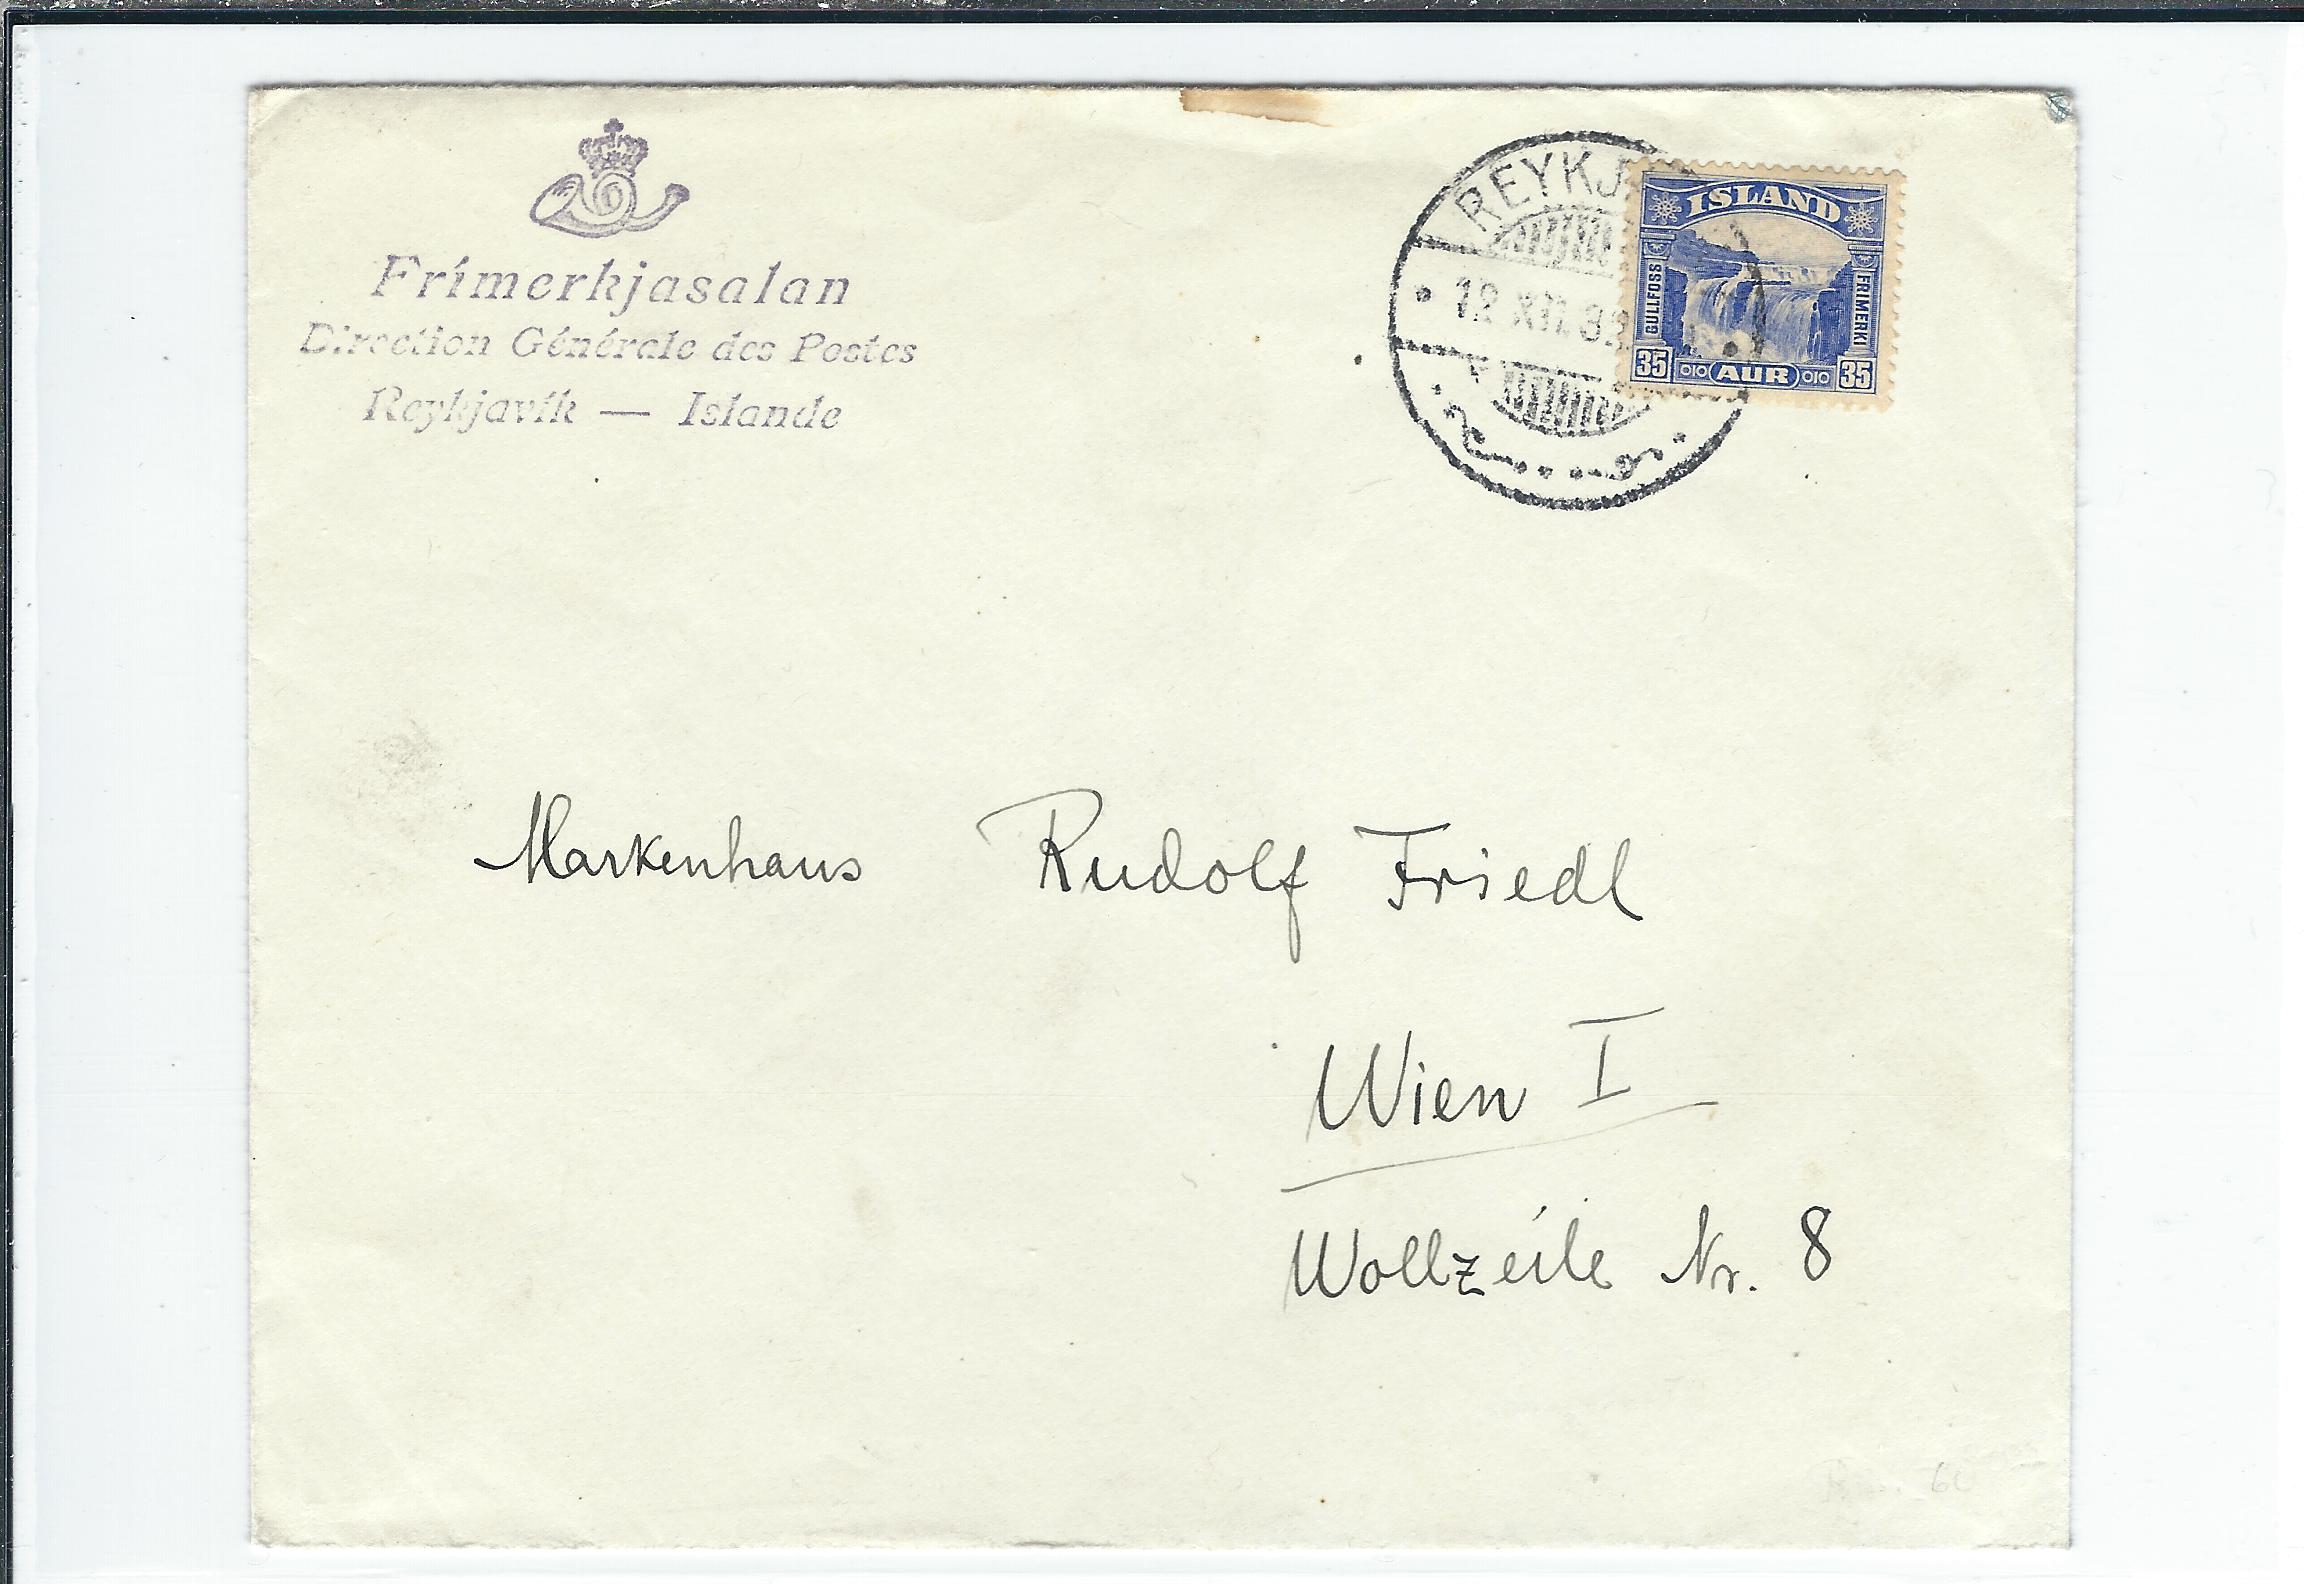 Frímerkjasalan
Direction Générale des Postes
Reykjavík — Islande
REYKJ
ISLAND
GULLFOSS
FRIMERKI
35 AUR 35
Markenhaus Rudolf Friedl
Wien I
Wollzeile Nr. 8